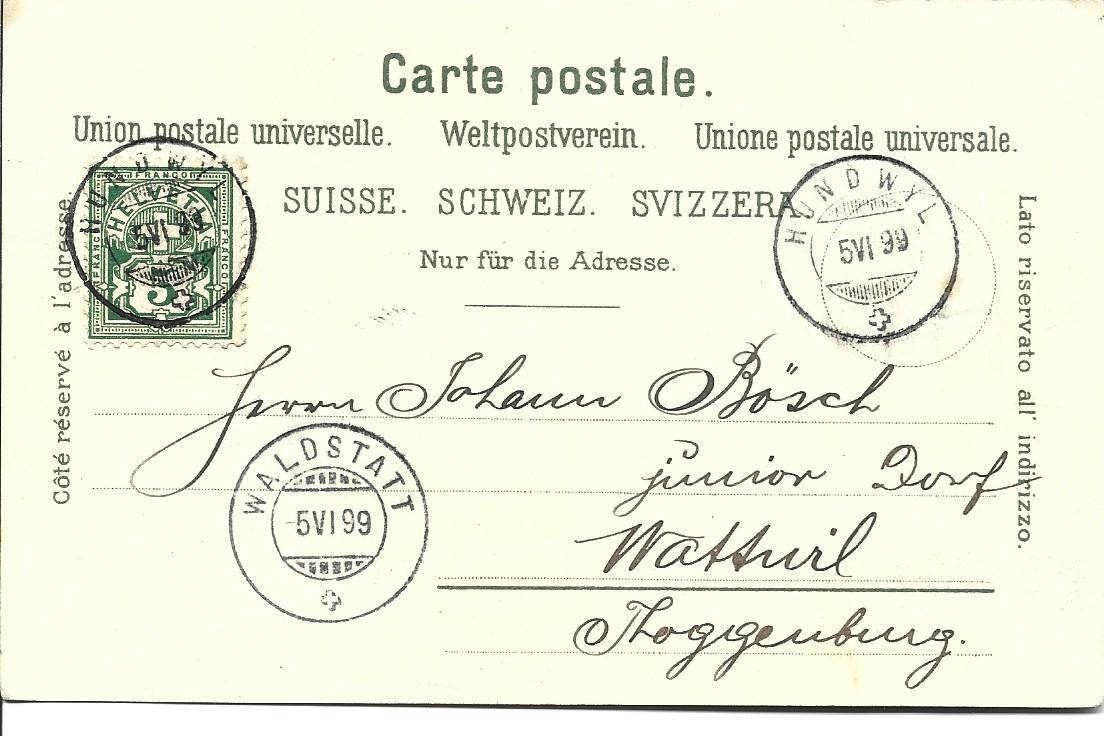 Carte postale.
Union postale universelle. Weltpostverein. Unione postale universale.
SUISSE. SCHWEIZ. SVIZZERA.
Nur für die Adresse.
Côté réservé à l'adresse.
Lato riservato all' indirizzo.
FRANCO
FRANCO
FRANCO
HELVETIA
5
HUNDWYL
5 VI 99
HUNDWYL
5 VI 99
Herrn Johann Bösch
junior Dorf
Wattwil
Thoggenburg.
WALDSTATT
-5 VI 99